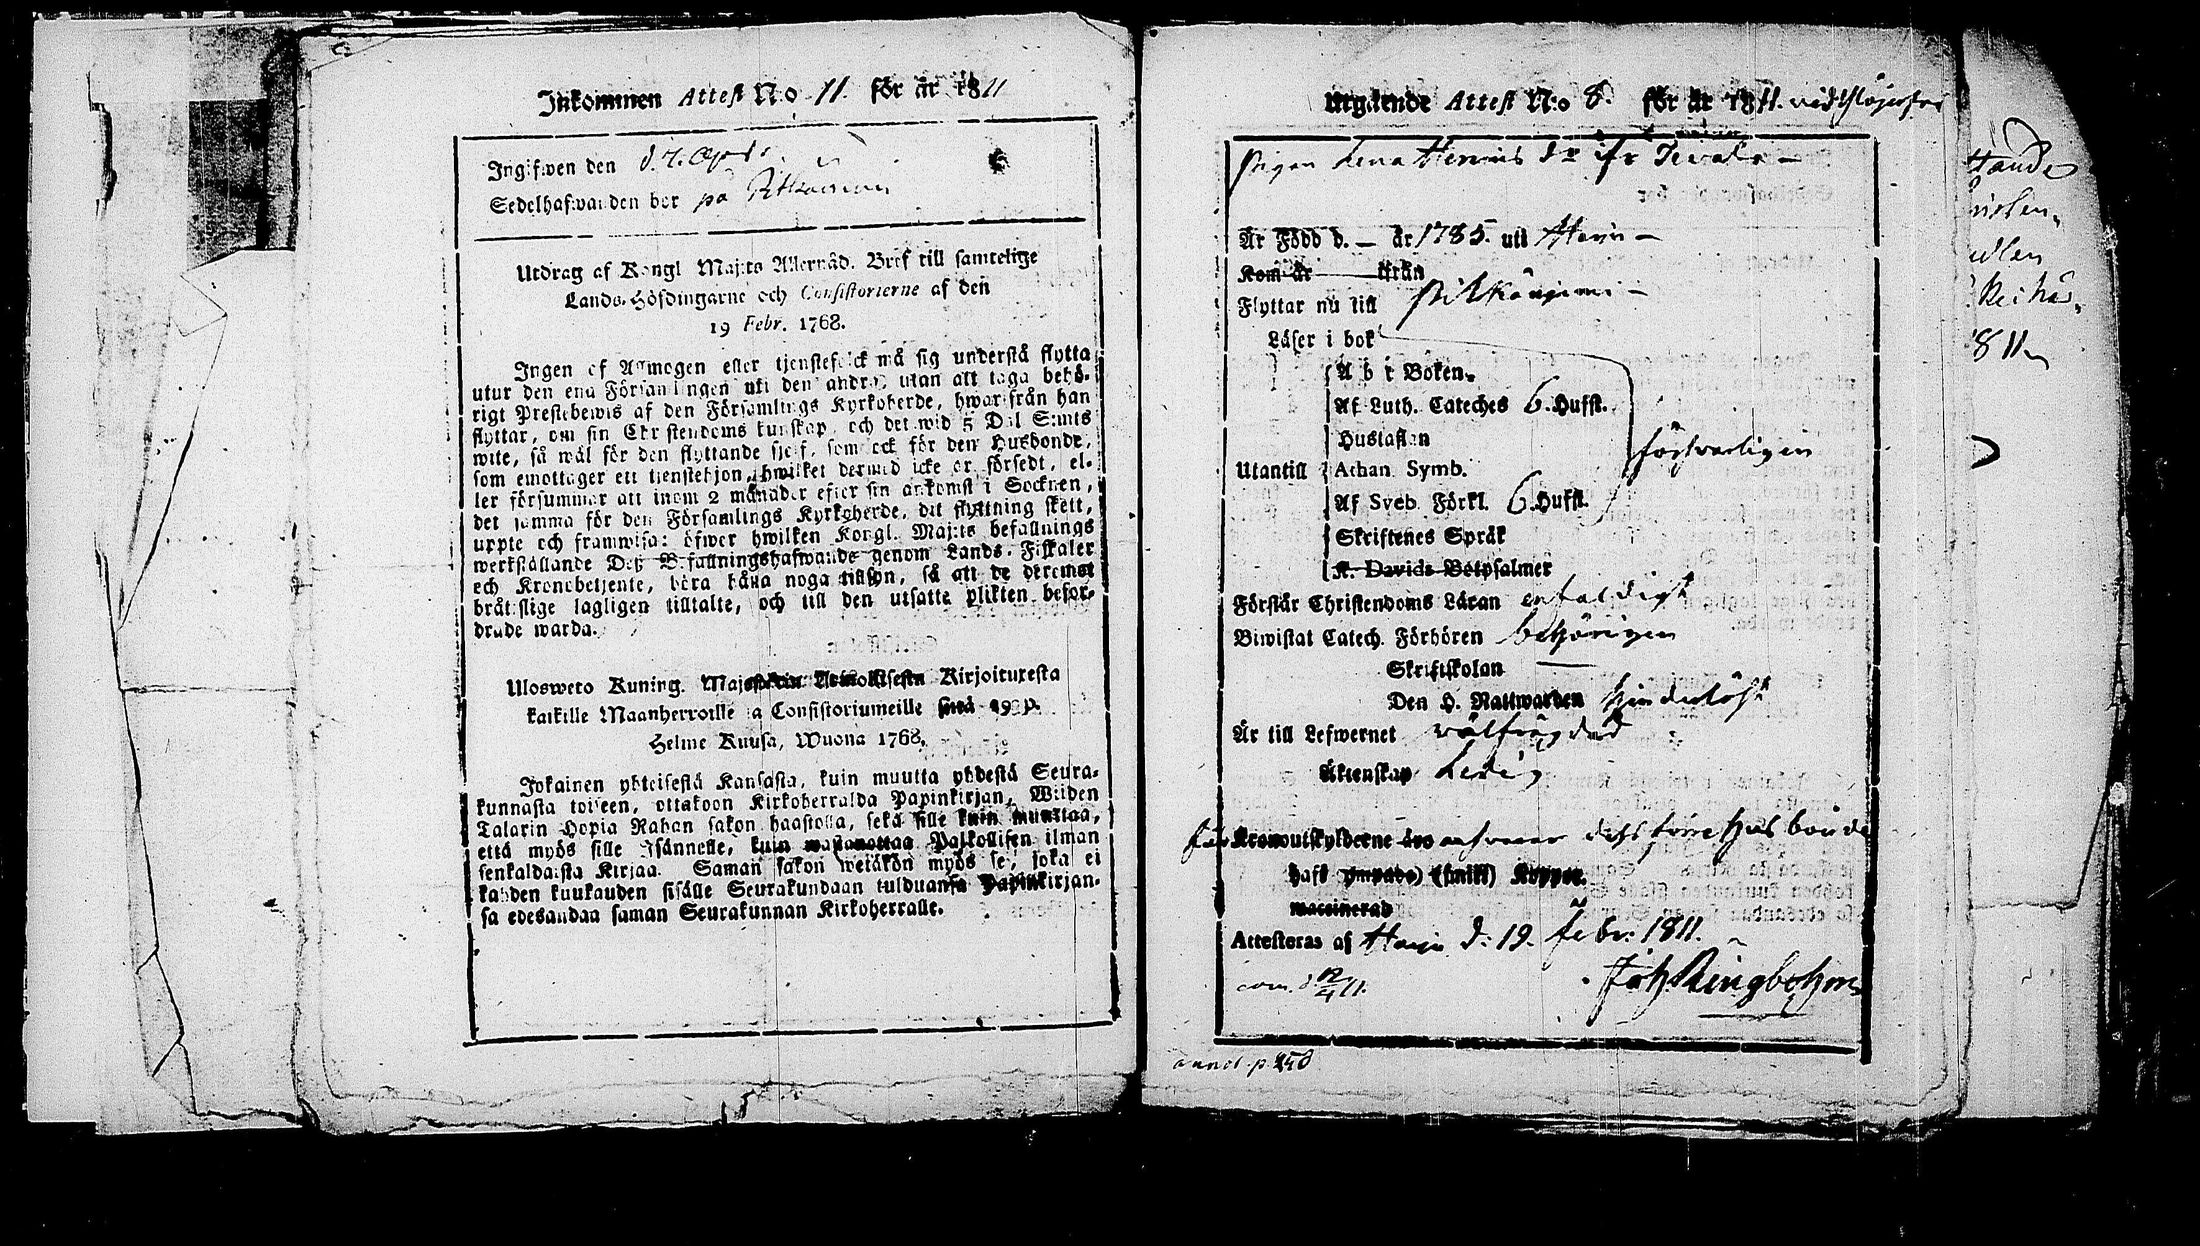 Inkommen Attest N:o 11. för år 1811
Ingifwen den d. 7. Apr.
Sedelhafwanden bor på
Utdrag af Kongl Maj:ts Allernåd. Bref till samtelige
Lands-Höfdingarne och Consistorierne af den
19 Febr. 1768.
Ingen af Allmogen eller tjenstefolck må sig understå flytta
utur den ena Församlingen uti den andra, utan att taga behö-
rigt Prestebewis af den Församlings Kyrkoherde, hwarifrån han
flyttar, om sin Christendoms kunskap, och det wid 5 Dal S:mts
wite, så wäl för den flyttande sjelf, som ock för den Husbonde,
som emottager ett tjenstehjon, hwilket dermed icke är försedt, el-
ler försummar att inom 2 månader efter sin ankomst i Socknen,
det samma för den Församlings Kyrkoherde, dit flyttning skett,
uppte och framwisa: öfwer hwilken Kongl. Maj:ts befallnings
werkställande Deß Befallningshafwande genom Lands-Fiskaler
och Kronobetjente, böra hålla noga tillsyn, så att de deremot
bråtslige lagligen tilltalte, och till den utsatte plikten befor-
drade warda.
Ulosweto Kuning. Majestetin Armollisesta Kirjoituresta
kaikille Maanherroille ja Consistoriumeille siitä 19 p.
Helme Kuusa, Wuona 1768.
Jokainen yhteisestä Kansasta, kuin muutta yhdestä Seura-
kunnasta toiseen, ottakoon Kirkoherralda Papinkirjan, Wiiden
Talarin Hopia Rahan sakon haastolla, sekä sille kuin muuttaa,
että myös sille Isännelle, kuin wastanottaa Palkollisen ilman
senkaldaista Kirjaa. Saman sakon wetäkön myös se, joka ei
kahden kuukauden sisälle Seurakundaan tulduansa Papinkirjan-
sa edesandaa saman Seurakunnan Kirkoherralle.
Utgående Attest N:o 8. för år 1811.
Pigan Lena Henric d:r ifr
Är Född d. — år 1785. uti
Kom år — ifrån
Flyttar nu till Pitkänjemi —
Läser i bok
A b c Boken.
Af Luth. Cateches 6. Hufst.
Hustaflan
Utantill Athan. Symb.
Af Sveb. Förkl. 6. Hufst.
Skriftenes Språk
K. Davids Botpsalmer
försvarligen
Förstår Christendoms Läran enfaldigt
Biwistat Catech. Förhören behörigen
Skriftskolan —
Den H. Nattwarden hinderlöst
Är till Lefwernet välfrägdad
Äktenskap Ledig
för Kronoutskylderne äro dess förre husbonde
haft (ympade) (smitt) Koppor.
waccinerad
Attesteras af d: 19. Febr. 1811.
Joh. Ringbohm
annot. p.